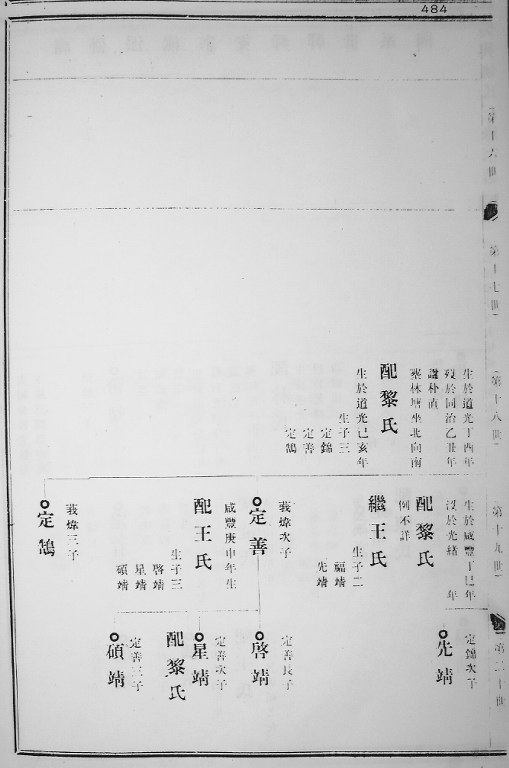 484
第十八世
第十七世
第十八世
第十九世
第二十世
生於道光丁酉年
歿於同治乙丑年
諡朴直
葬林塘坐北向南
配黎氏
生於道光己亥年
生子三
定錦
定善
定鵠
生於咸豐丁巳年
沒於光緒 年
配黎氏
例不詳
繼王氏
生子二
福靖
先靖
莪煒次子
定善
咸豐庚申年生
配王氏
生子三
啓靖
星靖
碩靖
莪煒三子
定鵠
定錦次子
先靖
定善長子
啓靖
定善次子
星靖
配黎氏
定善三子
碩靖